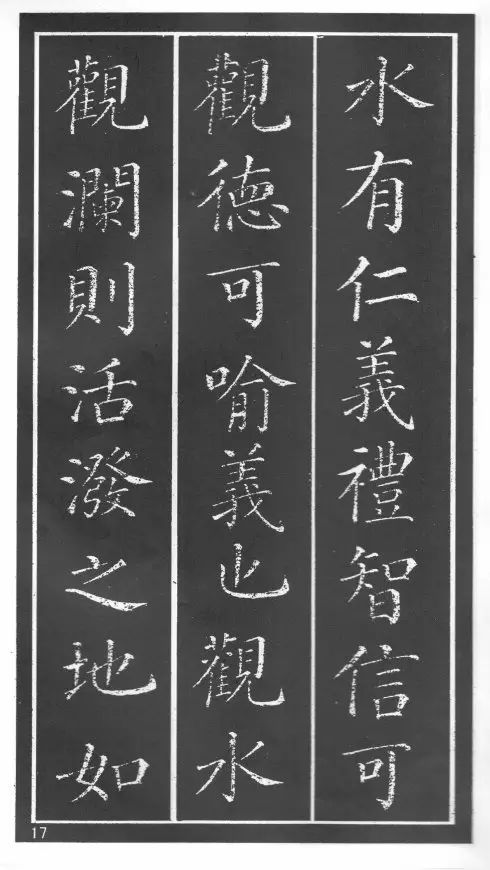 水有仁義禮智信可
觀德可喻義也觀水
觀瀾則活潑之地如
17